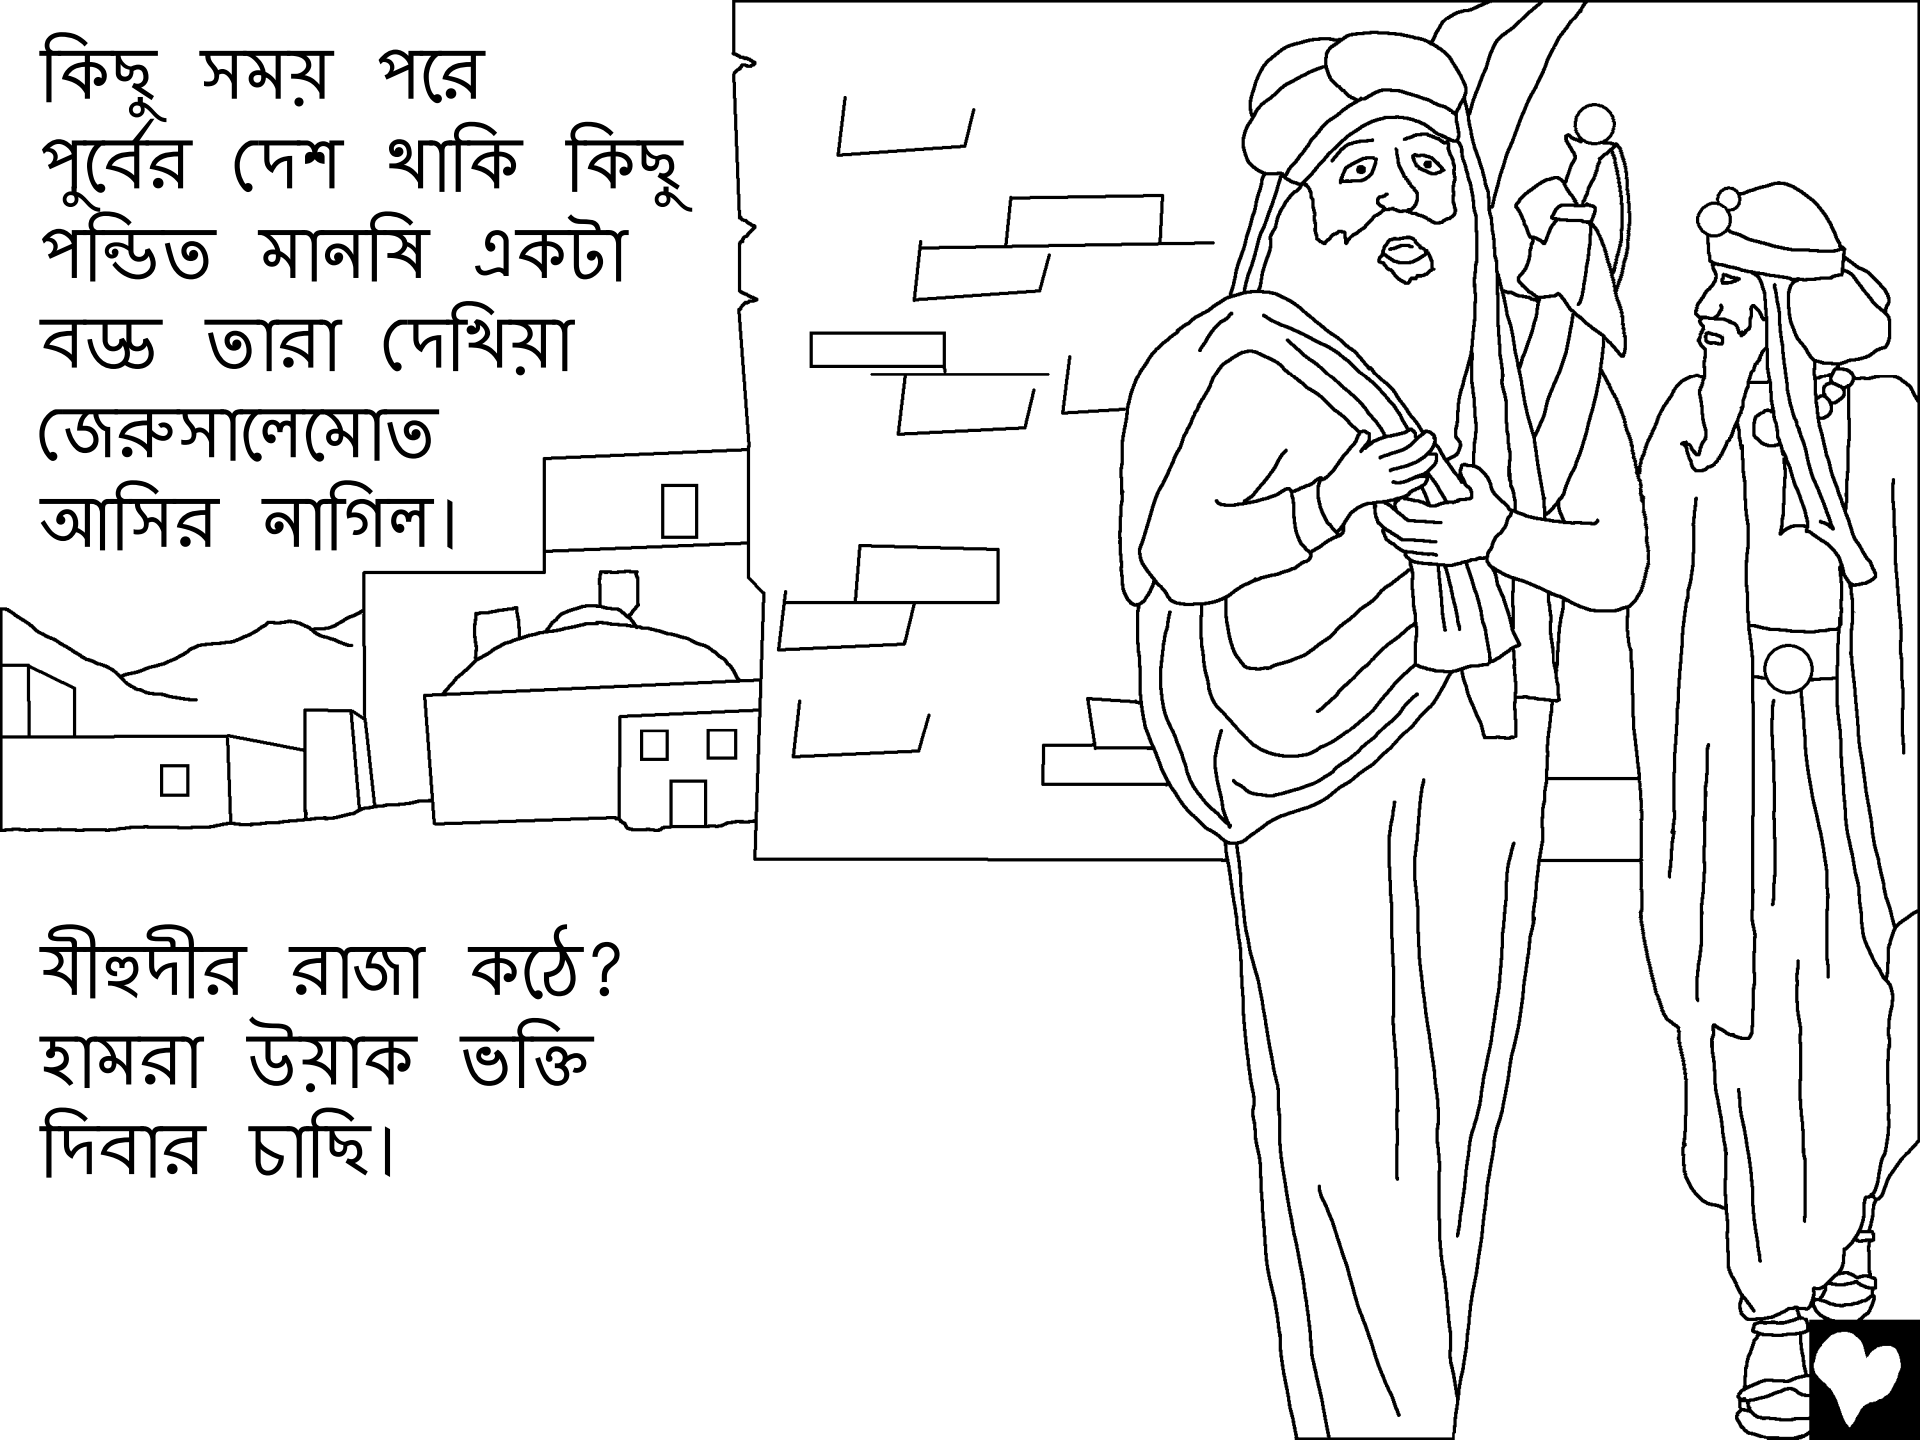 কিছু সময় পরে
পুর্বের দেশ থাকি কিছু
পন্ডিত মানষি একটা
বড্ড তারা দেখিয়া
জেরুসালেমোত
আসির নাগিল।
যীহুদীর রাজা কঠে?
হামরা উয়াক ভক্তি
দিবার চাছি।